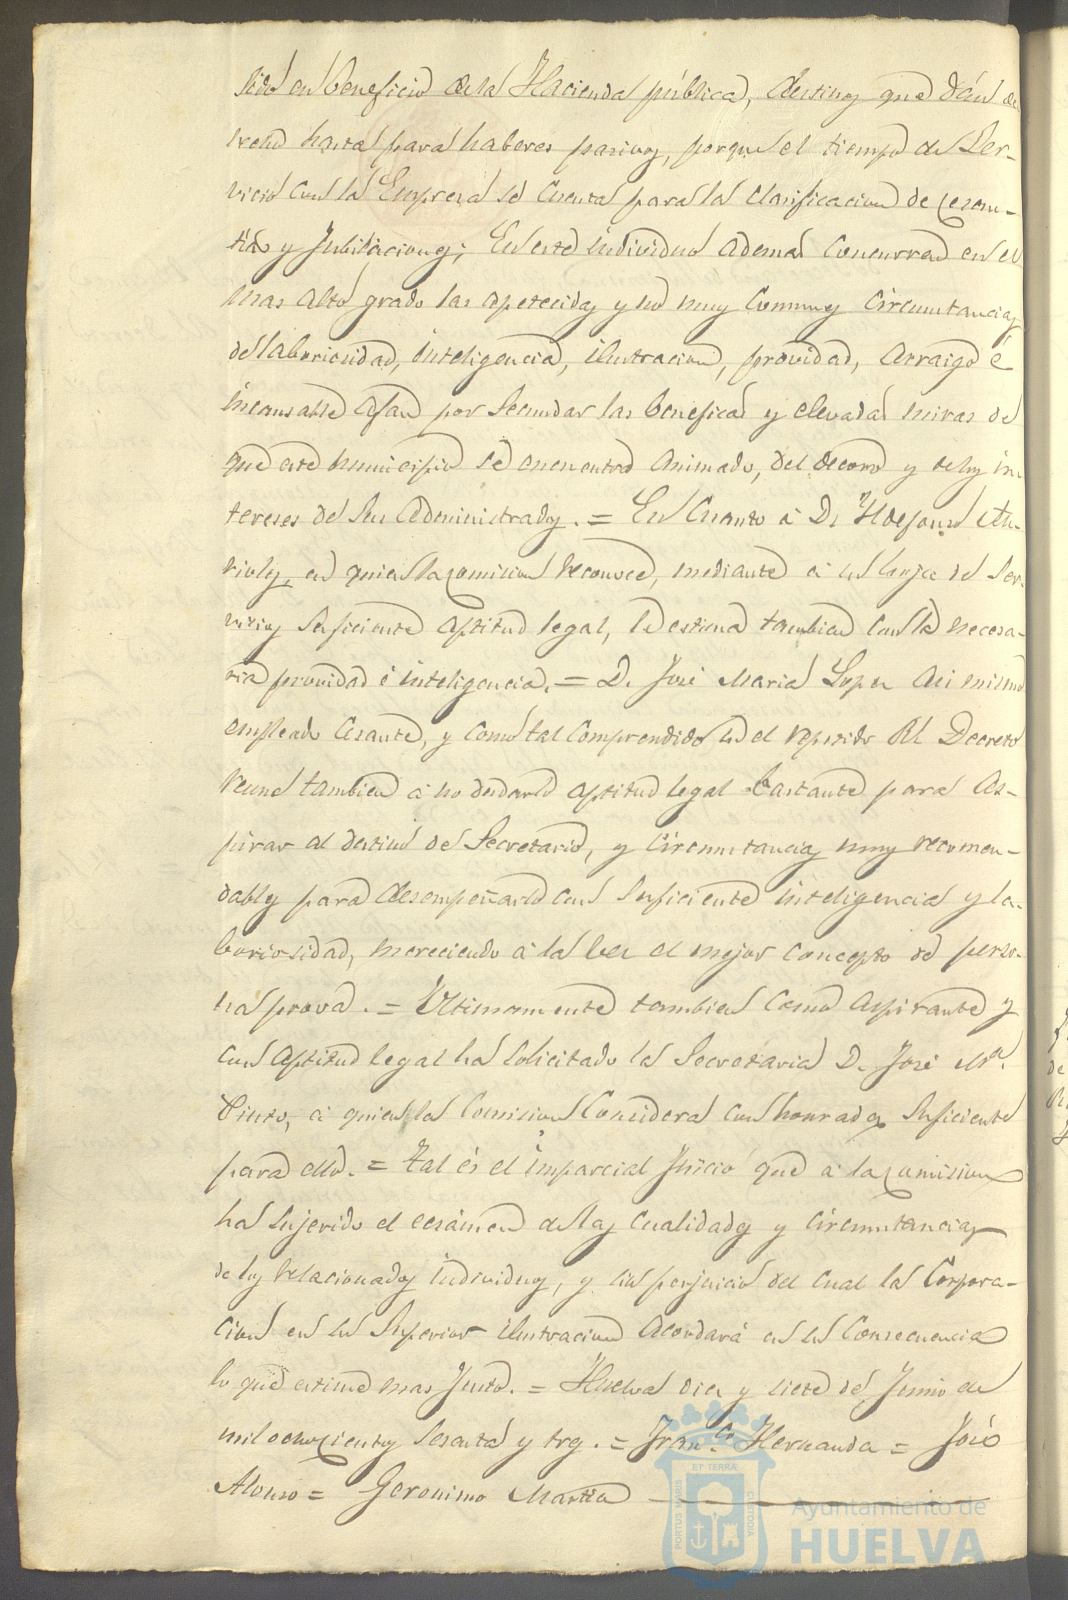 sido en beneficio de la Hacienda pública, destinos que dán de
recho hasta para haberes pasivos, porque el tiempo de Ser-
vicio con la Empresa se cuenta para la clasificacion de cesan-
tias y Jubilaciones; En este individuo ademas concurren en el
mas alto grado las apetecidas y no muy comunes circunstancias
de laboriosidad, inteligencia, ilustracion, providad, arraigo é
incansable afan por secundar las beneficas y elevadas miras de
que este municipio se encuentra animado, del decoro y de los in
tereses de sus Administrados. = En cuanto á Dn Yldefonso
en quien la comision reconoce, mediante á su hoja de ser-
vicios suficiente aptitud legal, le estima tambien con la necesa-
ria providad é inteligencia. = D. José Maria Lopez asi mismo
empleado cesante, y como tal comprendido en el repetido Rl Decreto
reune tambien á no dudarlo aptitud legal bastante para as-
pirar al destino de Secretario, y circunstancias muy recomen-
dables para desempeñarlo con suficiente inteligencia y la-
boriosidad, mereciendo á la vez el mejor concepto de perso-
na prova. = Ultimamente tambien como aspirante y
con aptitud legal ha solicitado la Secretaria D. José Ma.
Pinto, á quien la Comision considera con honradez suficiente
para ello. = Tal és el imparcial Juicio que á la comision
ha sujerido el ecsámen de las cualidades y circunstancias
de los relacionados individuos, y sin perjuicio del cual la Corpora-
cion en su superior ilustracion acordará en su consecuencia
lo que estime mas Justo. = Huelva diez y siete de Junio de
mil ochocientos sesenta y tres. = Franco Hernandez = José
Alonso = Geronimo Martin
PORTUS MARIS ET TERRÆ CUSTODIA
Ayuntamiento de
HUELVA